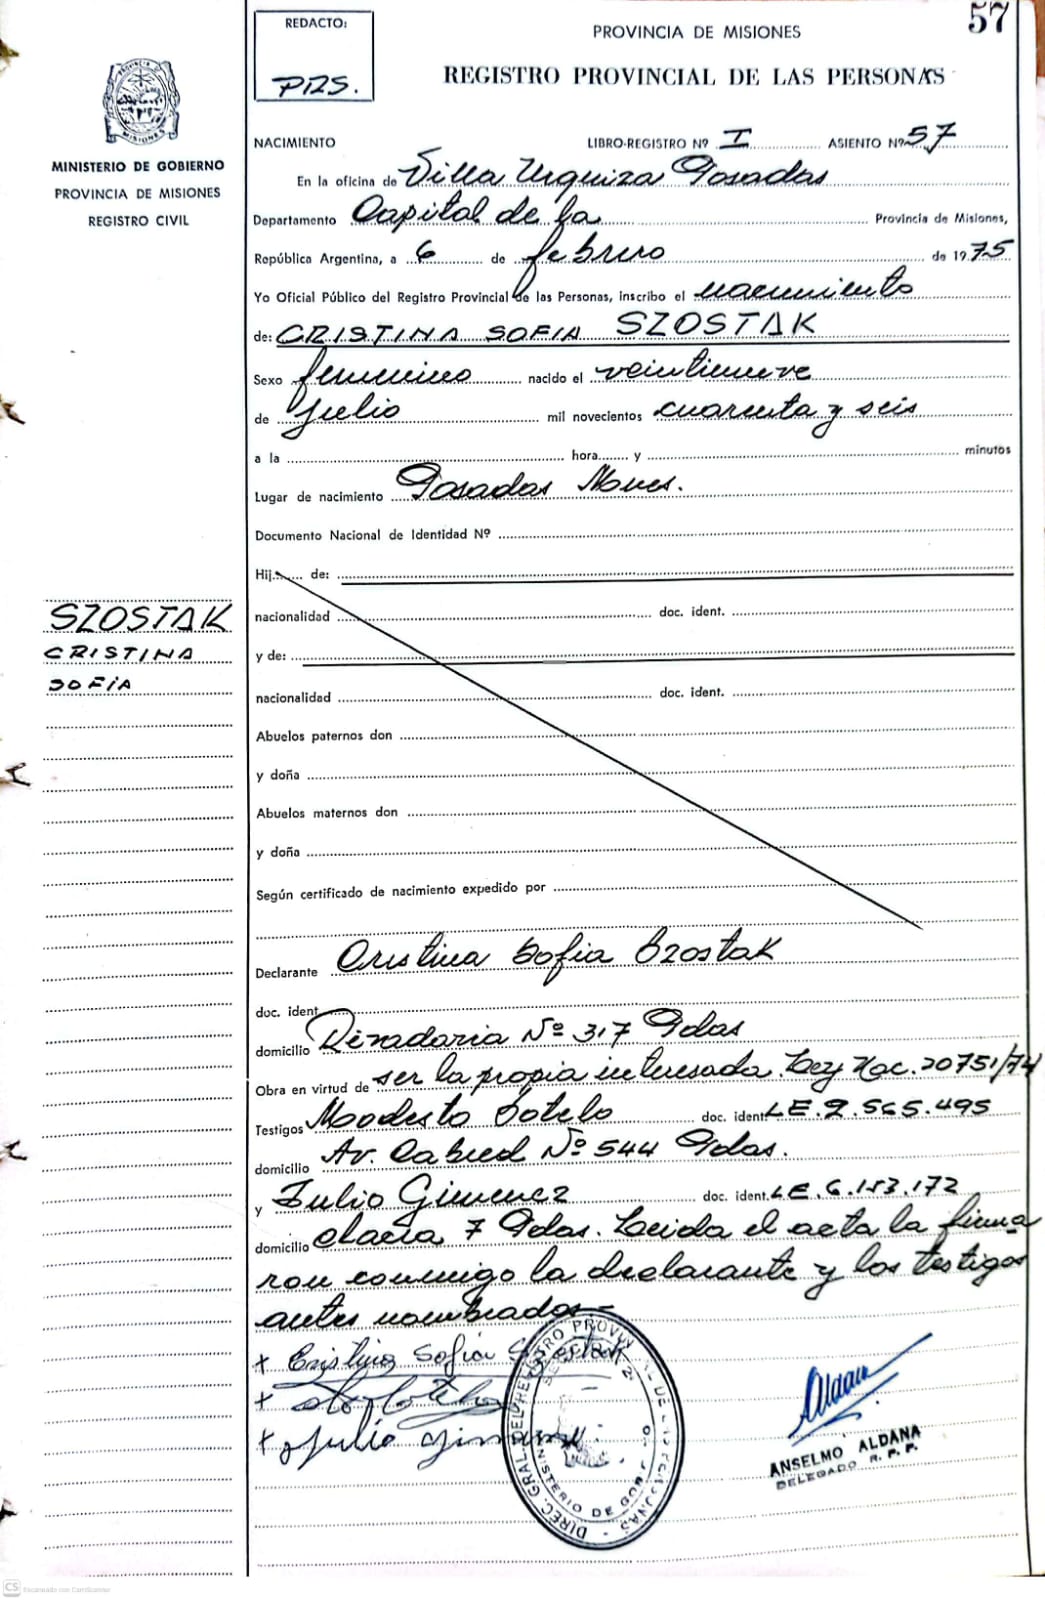 57
REDACTO:
PRS.
PROVINCIA DE MISIONES
REGISTRO PROVINCIAL DE LAS PERSONAS
MISIONES
MINISTERIO DE GOBIERNO
PROVINCIA DE MISIONES
REGISTRO CIVIL
NACIMIENTO LIBRO-REGISTRO Nº I ASIENTO Nº 57
En la oficina de Villa Urquiza Posadas
Departamento Capital de la Provincia de Misiones,
República Argentina, a 6 de febrero de 1975
Yo Oficial Público del Registro Provincial de las Personas, inscribo el nacimiento
de: CRISTINA SOFIA SZOSTAK
Sexo femenino nacido el veintinueve
de julio mil novecientos cuarenta y seis
a la hora y minutos
Lugar de nacimiento Posadas Mnes.
Documento Nacional de Identidad Nº
Hij de:
SZOSTAK
CRISTINA
SOFIA
nacionalidad doc. ident.
y de:
nacionalidad doc. ident.
Abuelos paternos don
y doña
Abuelos maternos don
y doña
Según certificado de nacimiento expedido por
Declarante Cristina Sofia Szostak
doc. ident.
domicilio Rivadavia Nº 317 Pdas
Obra en virtud de ser la propia interesada. Ley Nac. 20751/74
Testigos Modesto Sotelo doc. ident. LE. 2.565.495
domicilio Av. Cabred Nº 544 Pdas.
y Julio Gimenez doc. ident. LE. 6.153.172
domicilio chacra 7 Pdas. Leida el acta la firma
ron conmigo la declarante y los testigos
antes nombrados=
x Cristina Sofia Szostak
x Sotelo
x Julio Gimenez
DIREC. GRAL. DEL REGISTRO PROVINCIAL DE LAS PERSONAS
MINISTERIO DE GOB
Aldana
ANSELMO ALDANA
DELEGADO R. P. P.
CS Escaneado con CamScanner